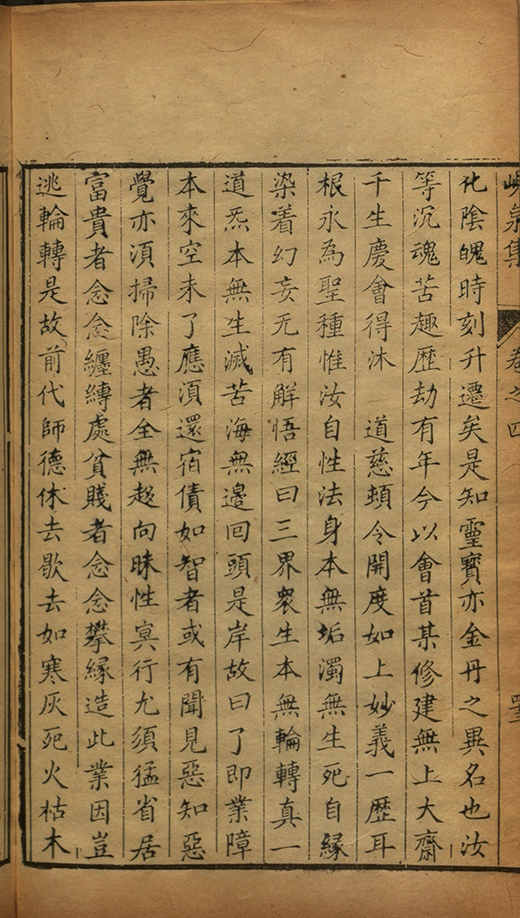 峴泉集 卷之四
化陰魄時刻升遷矣是知靈寶亦金丹之異名也汝
等沉魂苦趣歷劫有年今以會首某修建無上大齋
千生慶會得沐 道慈頓令開度如上妙義一歷耳
根永為聖種惟汝自性法身本無垢濁無生死自緣
染着幻妄无有解悟經曰三界衆生本無輪轉真一
道炁本無生滅苦海無邊回頭是岸故曰了即業障
本來空未了應湏還宿債如智者或有聞見惡知惡
覺亦湏掃除愚者全無趍向昧性㝠行尤須猛省居
富貴者念念纏縛處貧賤者念念攀緣造此業因豈
逃輪轉是故前代師德休去歇去如寒灰死火枯木